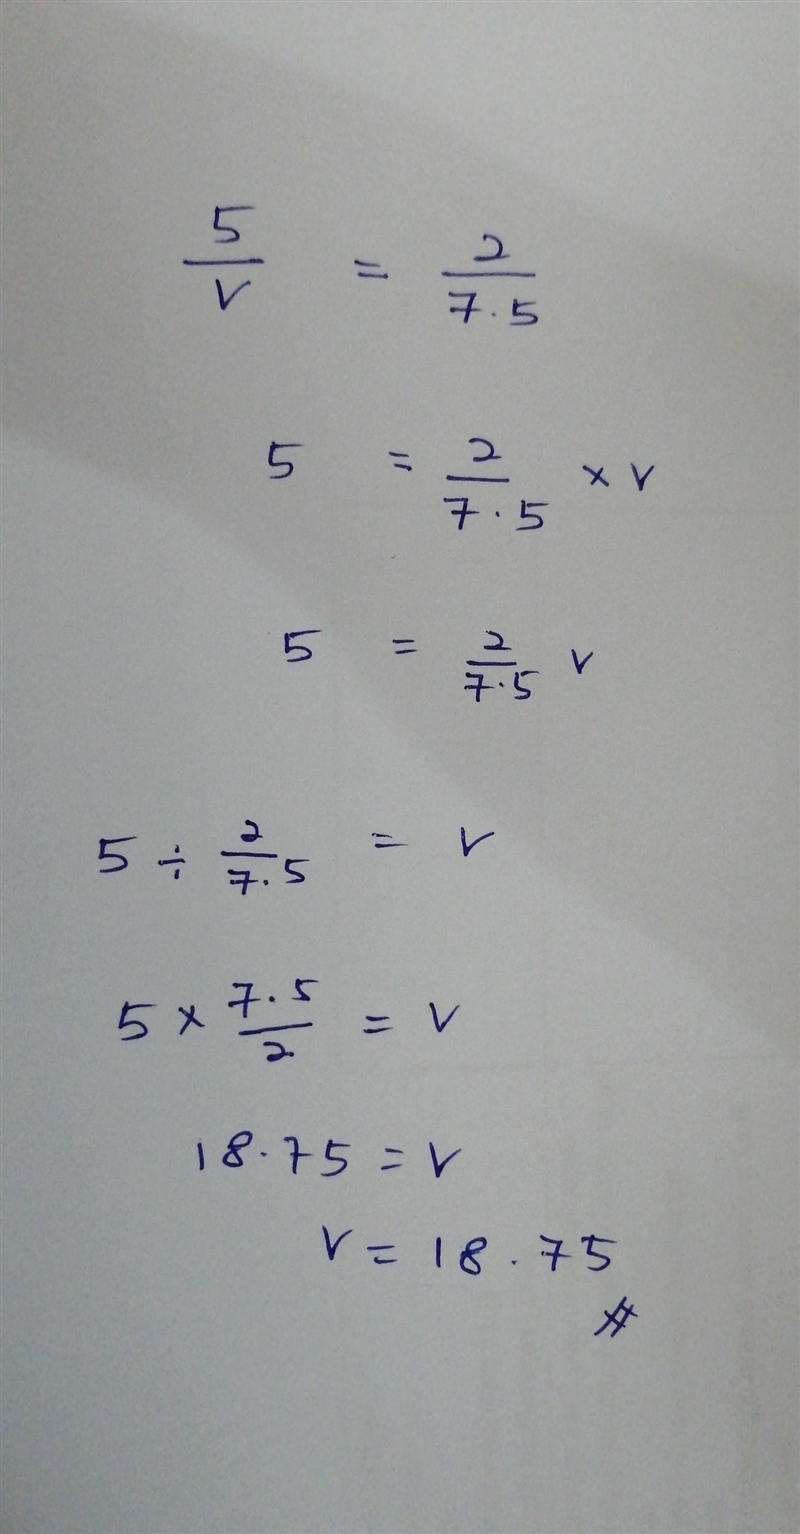 5/v = 2/7.5
5 = 2/7.5 × v
5 = 2/7.5 v
5 ÷ 2/7.5 = v
5 × 7.5/2 = v
18.75 = v
v = 18.75
#